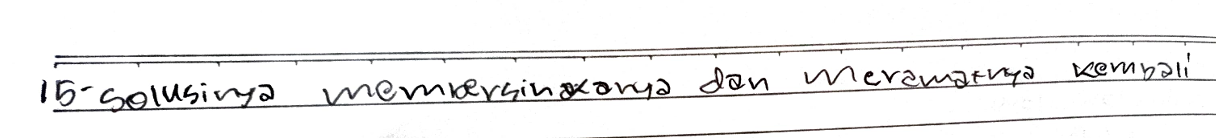 15-Solusinya membersihkanya dan merawatnya kembali